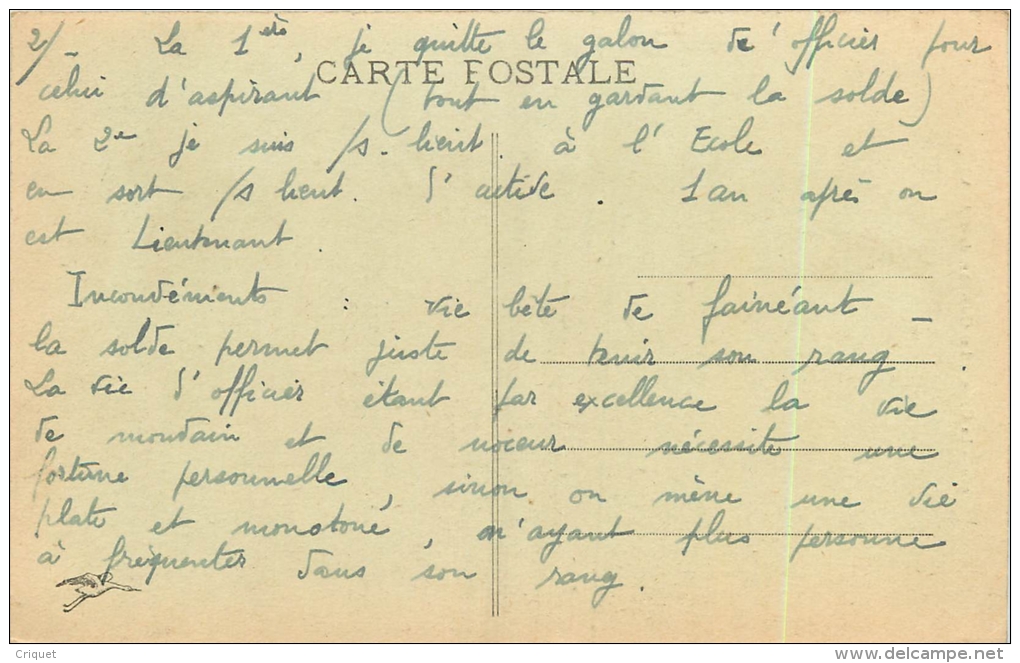 2/- La 1ère, je quitte le galon de l'officier pour
CARTE POSTALE
celui d'aspirant (tout en gardant la solde)
La 2e je suis /s. lieut. à l'Ecole et
en sort /s lieut. d'active. 1 an après on
est Lieutenant.
Inconvéments : vie bête de fainéant -
la solde permet juste de tenir son rang.
La vie d'officier étant par excellence la vie
de mondain et de noceur nécessite une
fortune personnelle, sinon on mène une vie
plate et monotone, n'ayant plus personne
à fréquenter dans son rang.
Criquet
www.delcampe.net